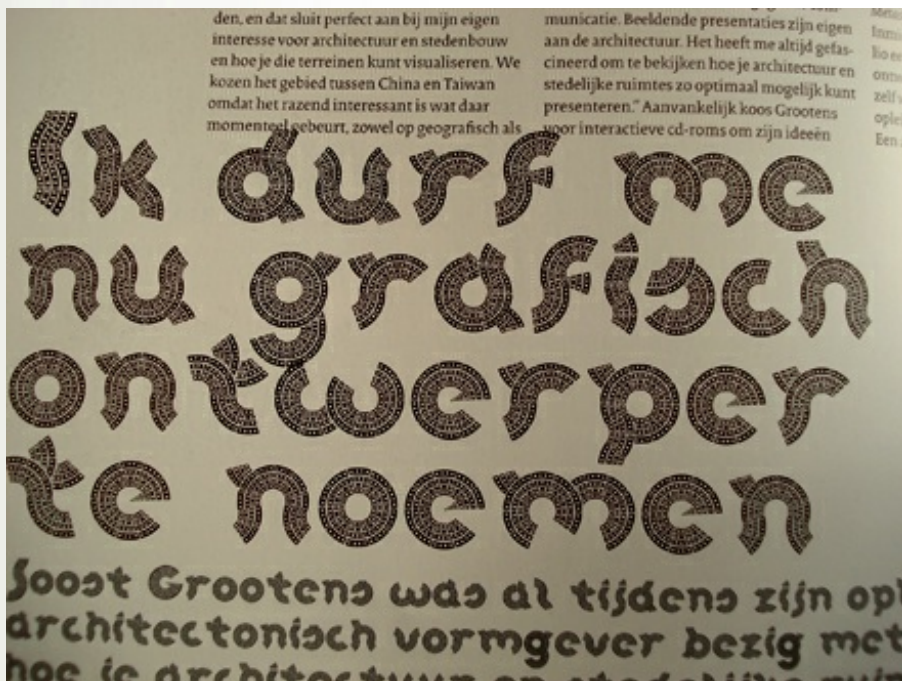 den, en dat sluit perfect aan bij mijn eigen
interesse voor architectuur en stedenbouw
en hoe je die terreinen kunt visualiseren. We
kozen het gebied tussen China en Taiwan
omdat het razend interessant is wat daar
momenteel gebeurt, zowel op geografisch als
municatie. Beeldende presentaties zijn eigen
aan de architectuur. Het heeft me altijd gefas-
cineerd om te bekijken hoe je architectuur en
stedelijke ruimtes zo optimaal mogelijk kunt
presenteren.” Aanvankelijk koos Grootens
voor interactieve cd-roms om zijn ideeën
Een
Ik durf me
nu grafisch
ontwerper
te noemen
Joost Grootens was al tijdens zijn opl
architectonisch vormgever bezig met
hoe je architectuur en stedelijke ruim